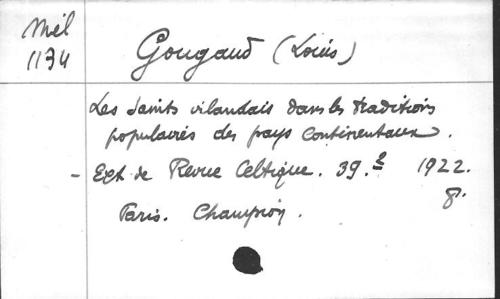 Mél
1134
Gougaud (Louis)
Les Saints irlandais dans les traditions
populaires des pays continentaux.
- Ext. de Revue Celtique. 39. 2 1922.
8°.
Paris. Champion.